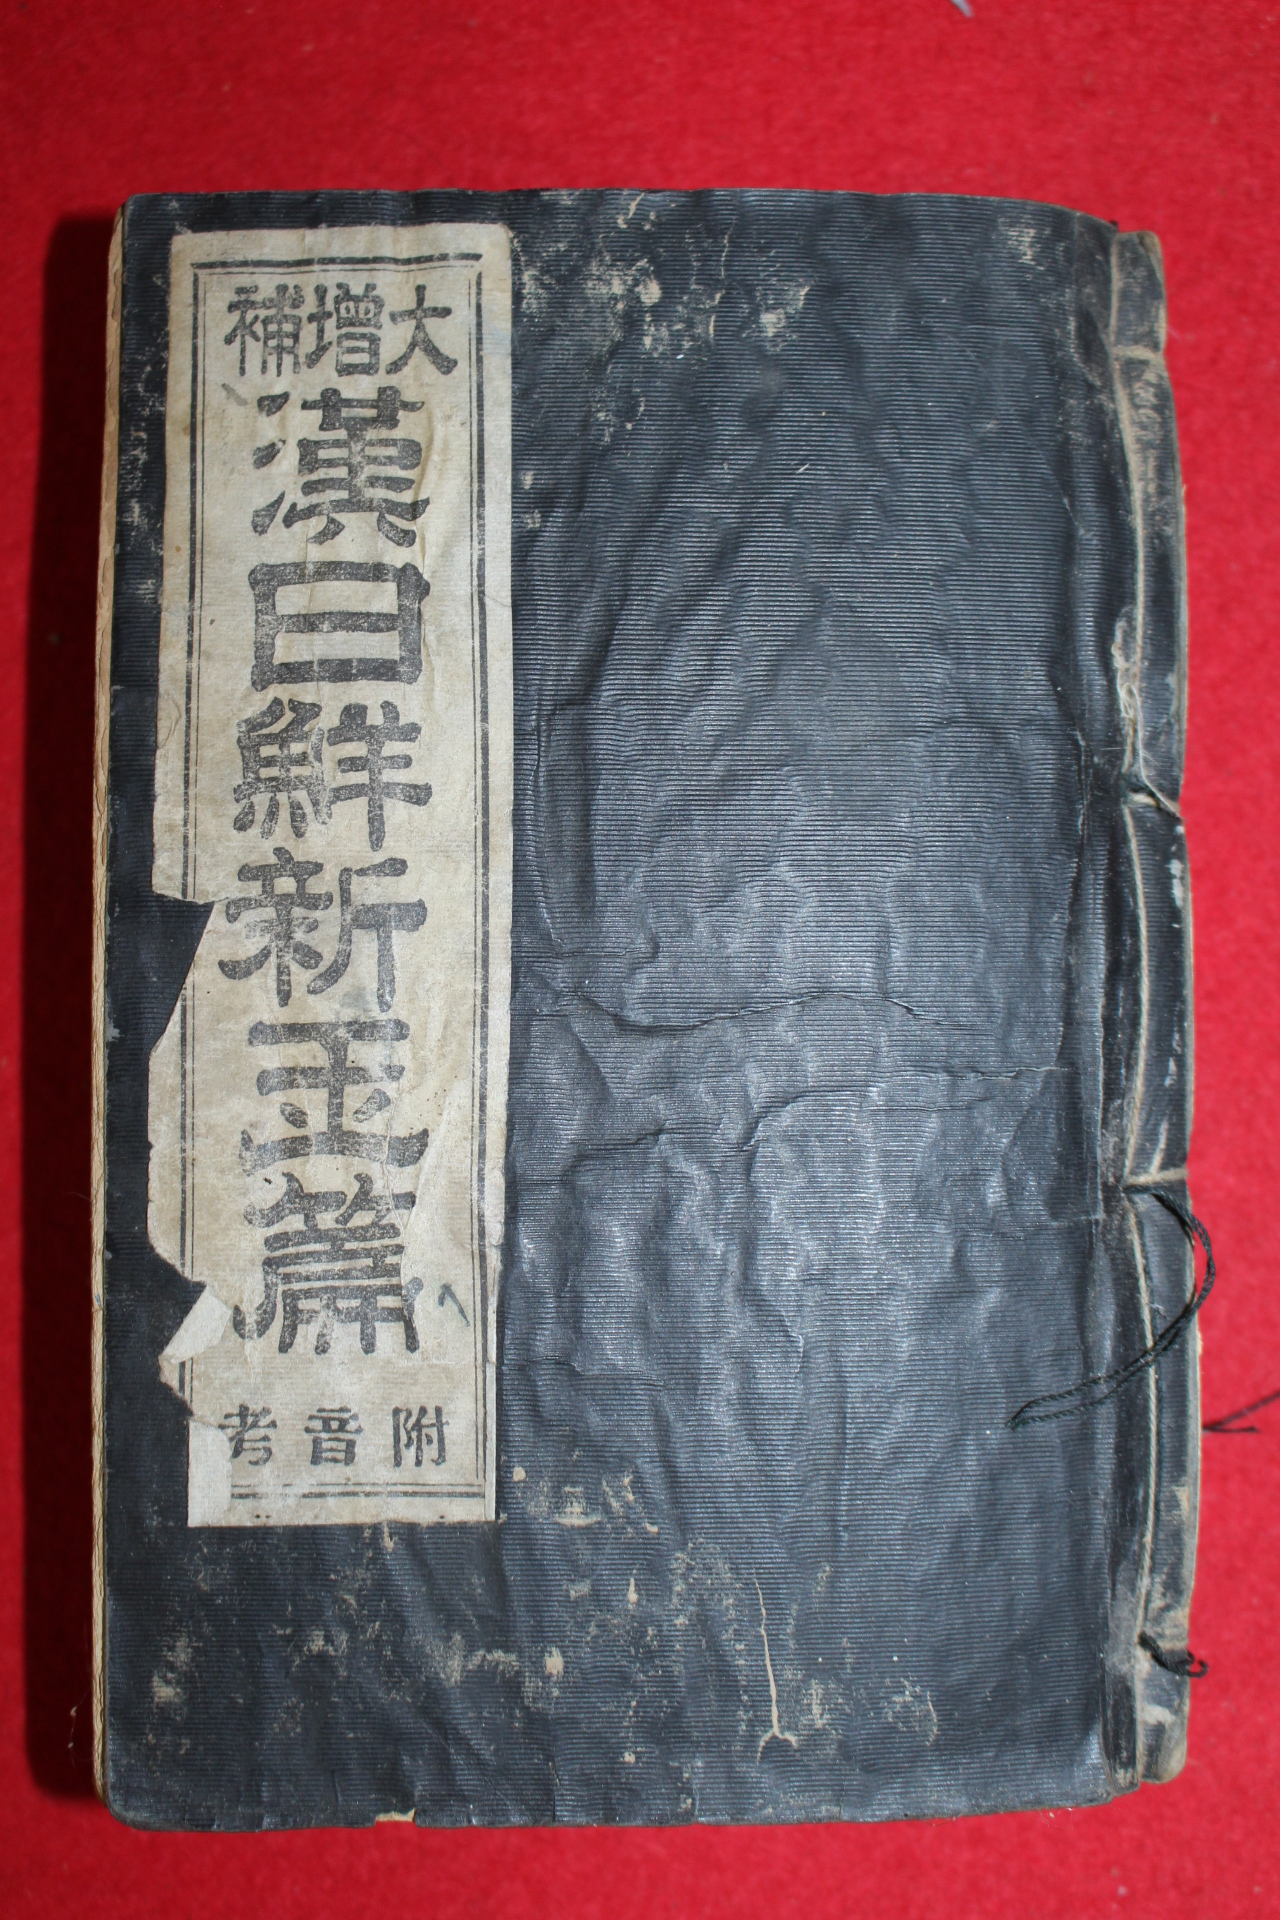 大增補
漢日鮮新玉篇
附音考